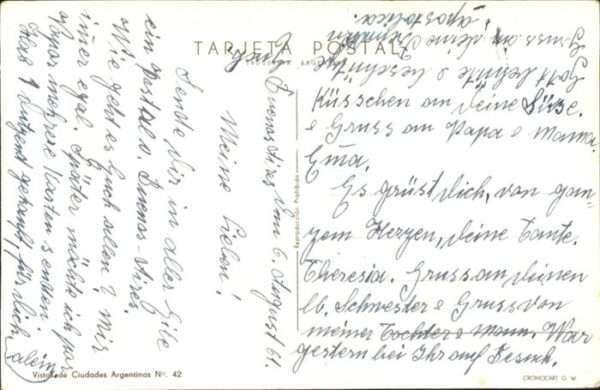 TARJETA POSTAL
Buenos Aires den 6. August 61.
Meine Lieben!
Sende Dir in aller Eile
ein Postal v. Buenos-Aires.
Wie geht es Euch allen? mir
imer egal. Später möchte ich paar
mehrere Karten senden.
Hab 1 Dutzend gekauft, für Dich
allein
Es grüst Dich, von gan-
zem Herzen, Deine Tante.
Theresia. Gruss an Deinen
lb. Schwester & Gruss von
meiner Tochter & Mann. War
gestern bei Ihr auf Besuch.
Küsschen an Deine Süsse.
& Gruss an Papa & Mama
Ema.
Gott behüte & beschütze
Euch
Gruss an deine
apostolica.
Reproducción Prohibida
Vistas de Ciudades Argentinas Nº. 42
CROMOCART G. M.